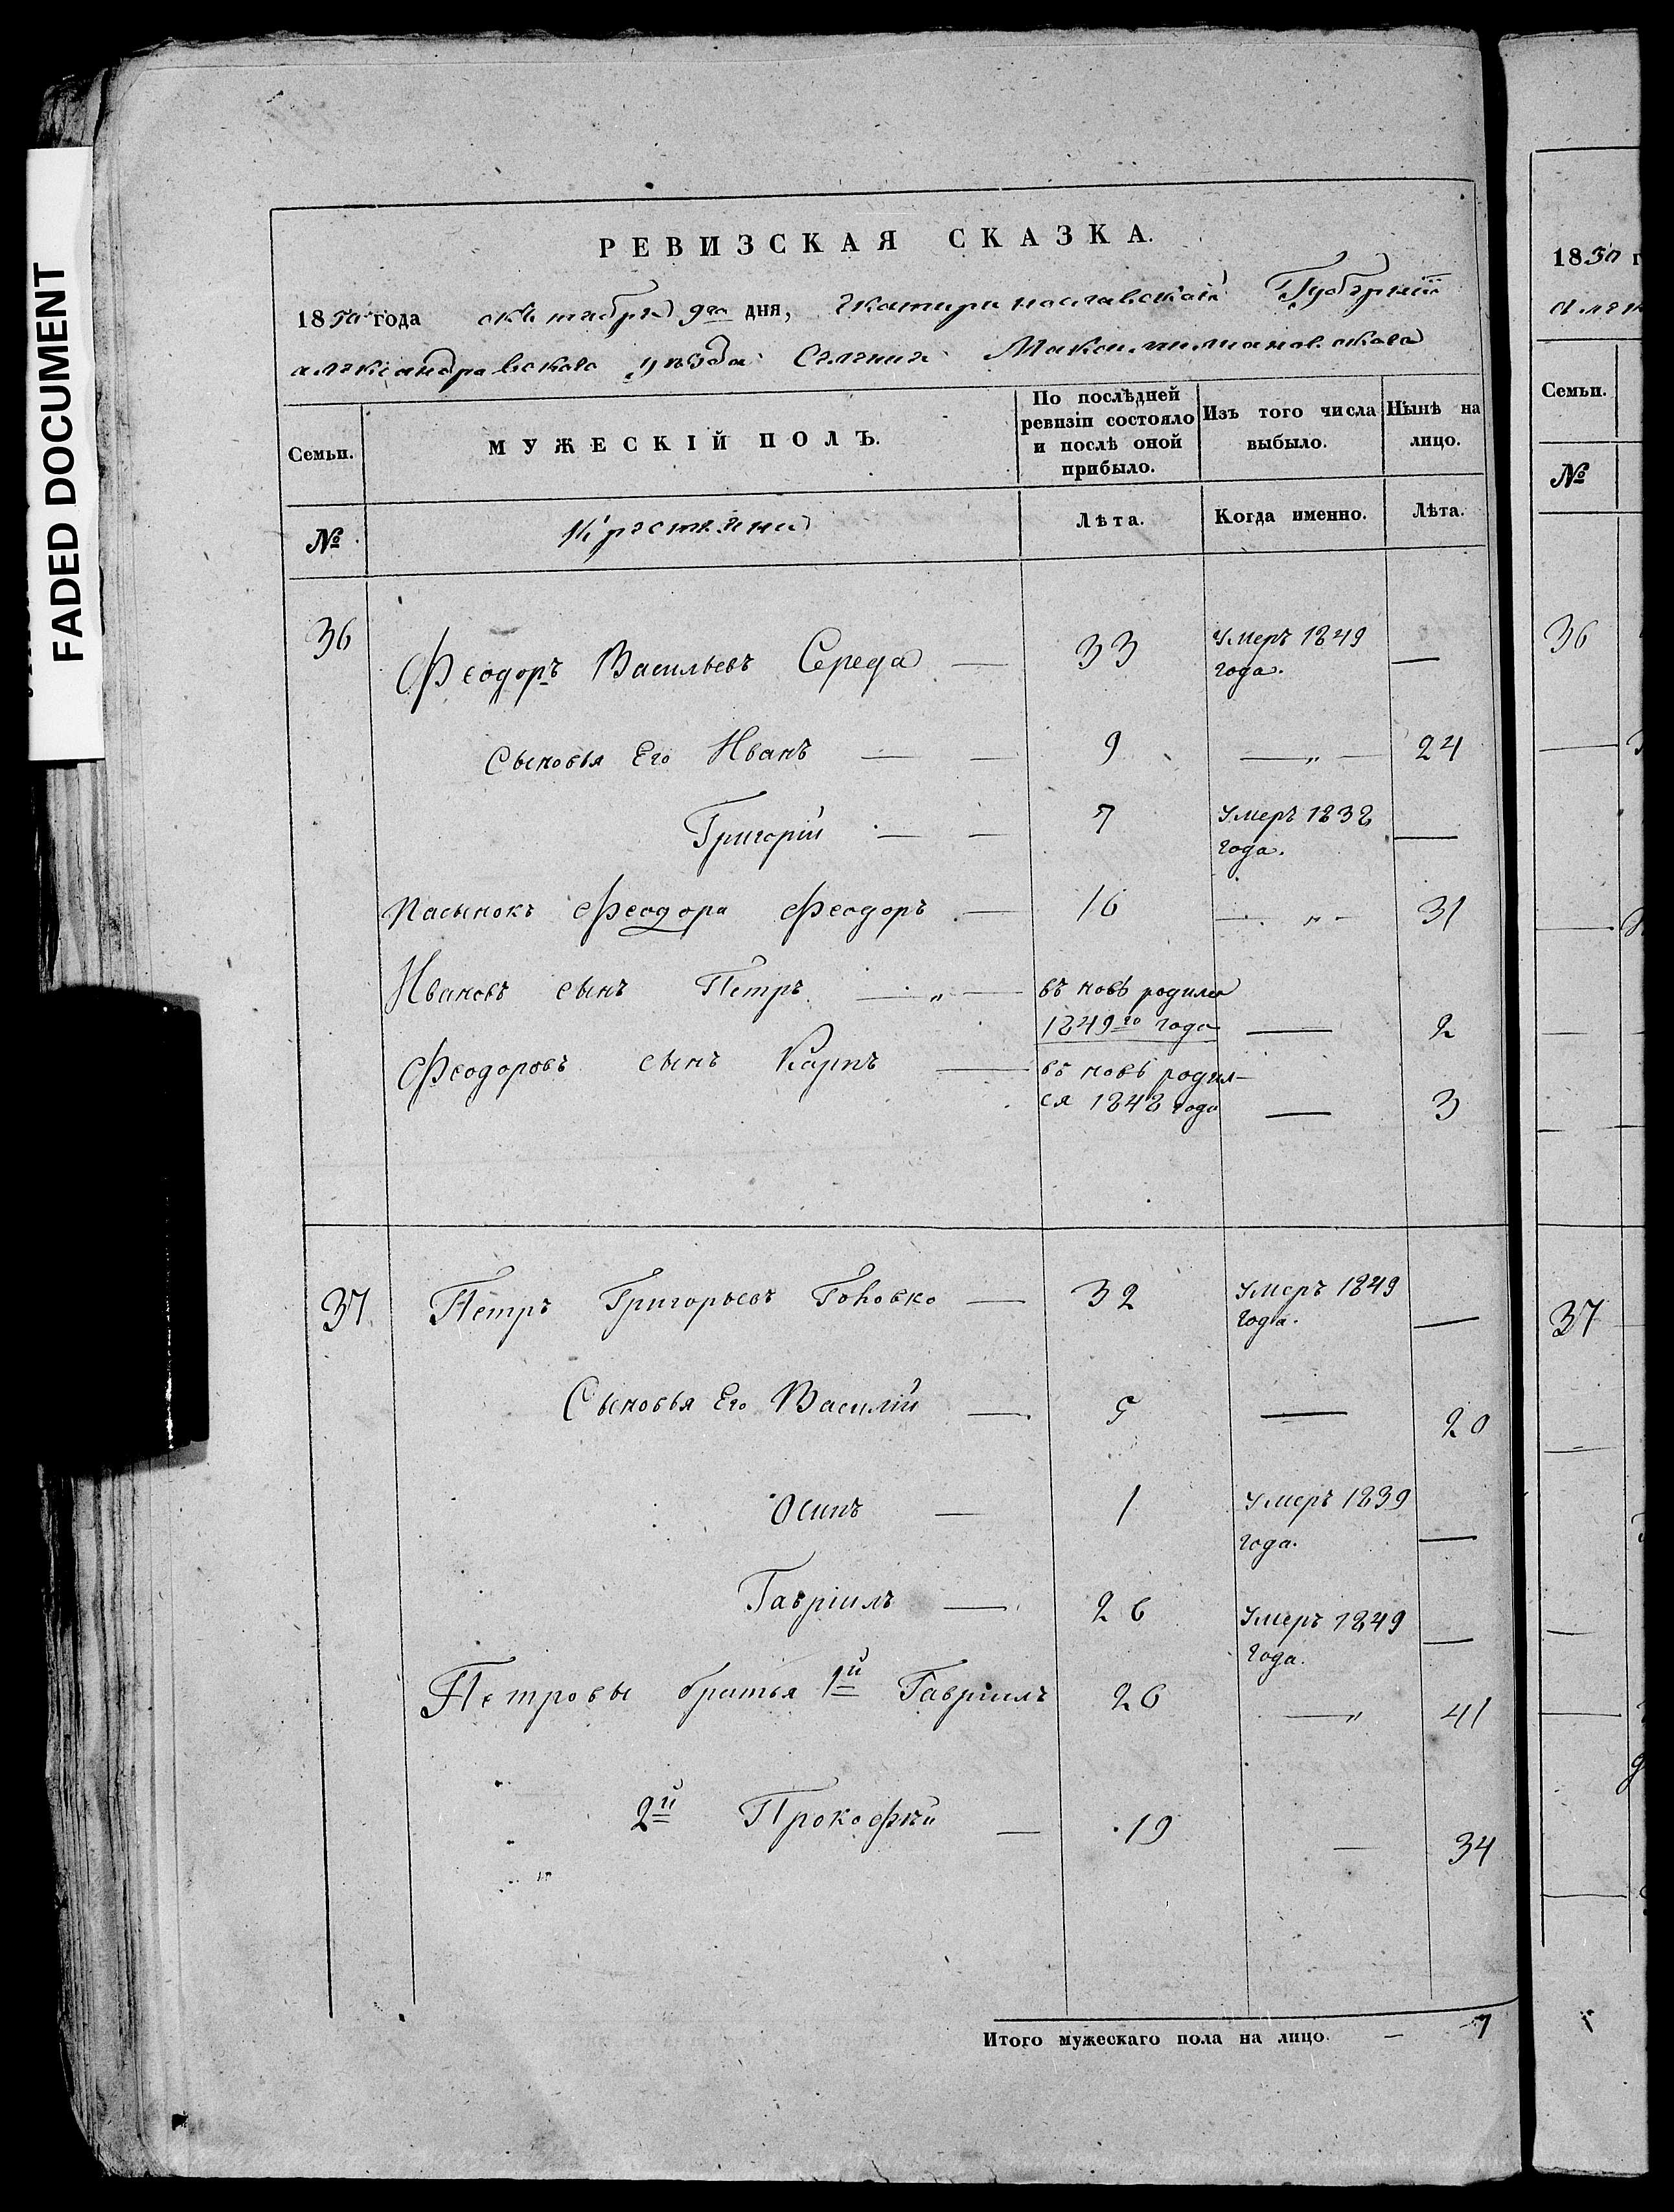 FADED DOCUMENT
РЕВИЗСКАЯ СКАЗКА.
1850 года октября 9го дня, Екатеринославской Губерніи
александровского уѣзда Селенія Максимилиановского
Семьи.
МУЖЕСКІЙ ПОЛЪ.
По послѣдней ревизіи состояло и послѣ оной прибыло.
Изъ того числа выбыло.
Нынѣ на лицо.
№ Крестяни Лѣта. Когда именно. Лѣта.
36 Феодоръ Васильевъ Середа — 33 Умеръ 1849 года. —
Сыновья Его Иванъ — — 9 — „ — 24
Григорій — — 7 Умеръ 1838 года. —
Пасынокъ Феодора Феодоръ — 16 — „ — 31
Ивановъ сынъ Петръ — „ — въ новь родился 1849го года — 2
Феодоровъ сынъ Карпъ — въ новь родил- ся 1848 года — 3
37 Петръ Григорьевъ — 32 Умеръ 1849 года. —
Сыновья Его Василій — 5 — 20
Осипъ — 1 Умеръ 1839 года. —
Гавріилъ — 26 Умеръ 1849 года. —
Петровы братья 1й Гавріилъ 26 — „ 41
2й Прокофѣй — 19 — 34
Итого мужескаго пола на лицо. — 7
1850 г
Семьи.
№
36
37